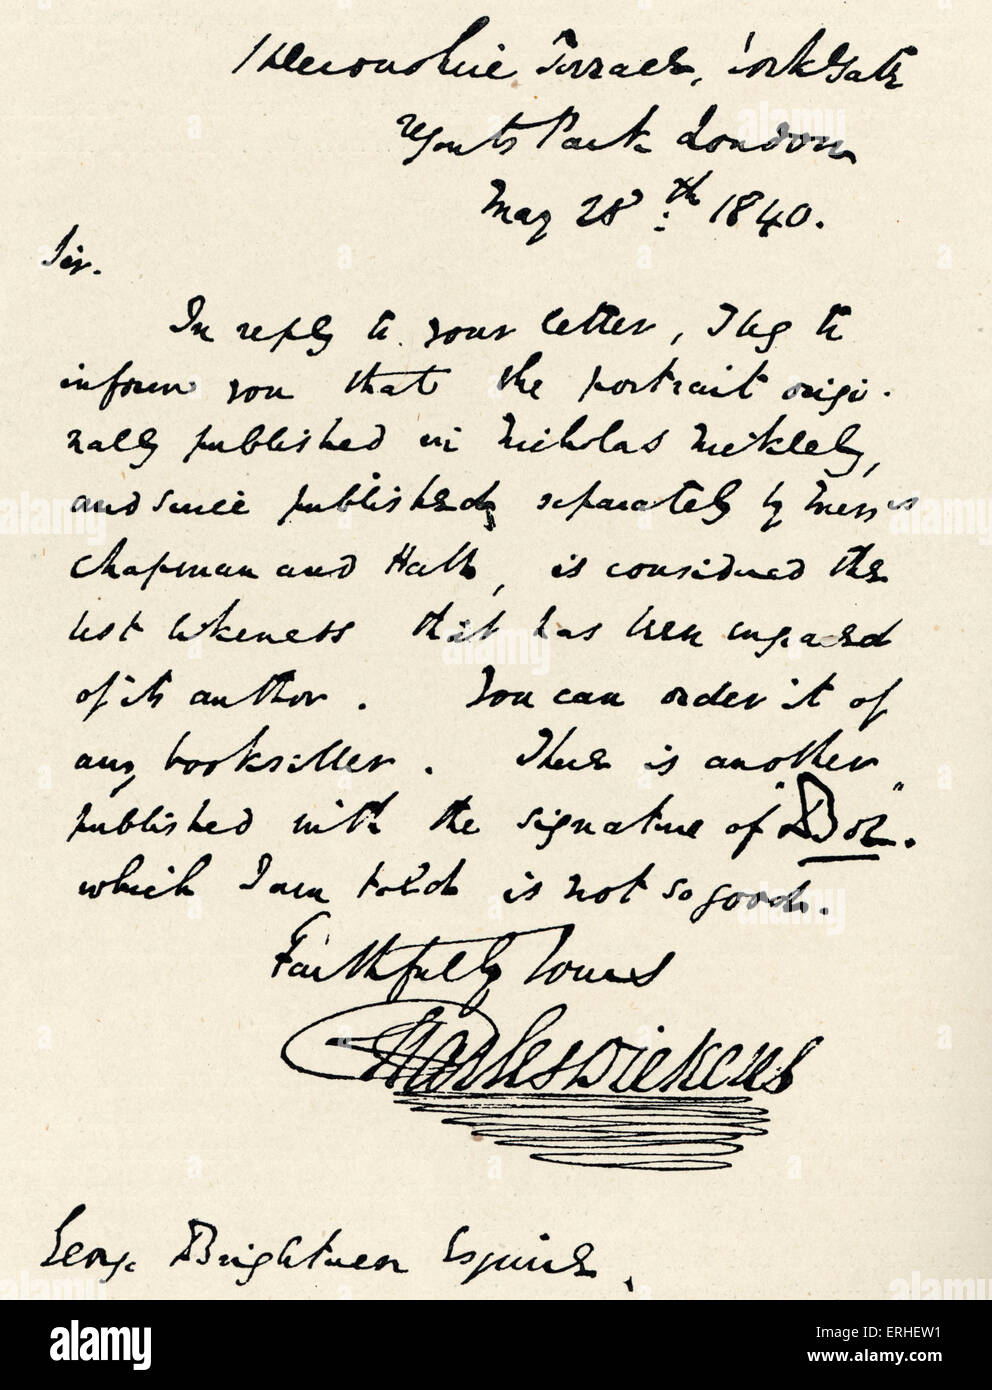 1 Devonshire Terrace, York Gate
Regents Park London
May 28th. 1840.
Sir.
In reply to your letter, I beg to
inform you that the portrait origi-
nally published in Nicholas Nickleby,
and since published separately by Messrs
Chapman and Hall, is considered the
best likeness that has been engraved
of its author. You can order it of
any bookseller. There is another
published with the signature of "Boz".
which I am told is not so good.
Faithfully Yours
Charles Dickens
George Brightwen Esquire.
alamy
Image ID: ERHEW1
www.alamy.com